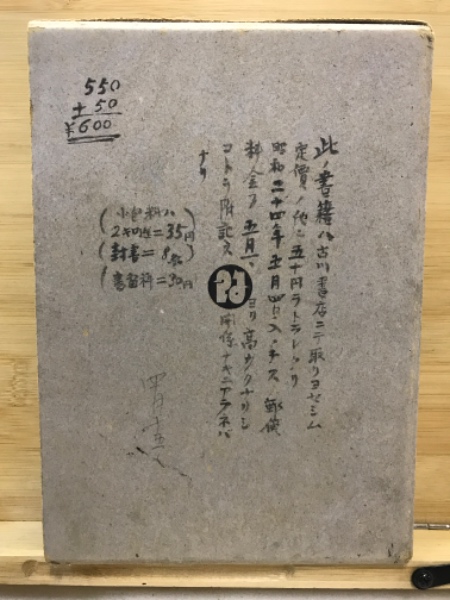 550
+ 50
¥600
此ノ書籍ハ古川書店ニテ取リヨセシム
定價ノ他ニ五十円ヲトラレタリ
昭和二十四年五月四日入手ス 郵便
料金ヲ五月一日ヨリ高クナリシ
コトヲ附記ス 関係ナキニアラネバ
ナリ
(小包料ハ
(2キロ迄=35円
(封書= 8円
(書留料=30円